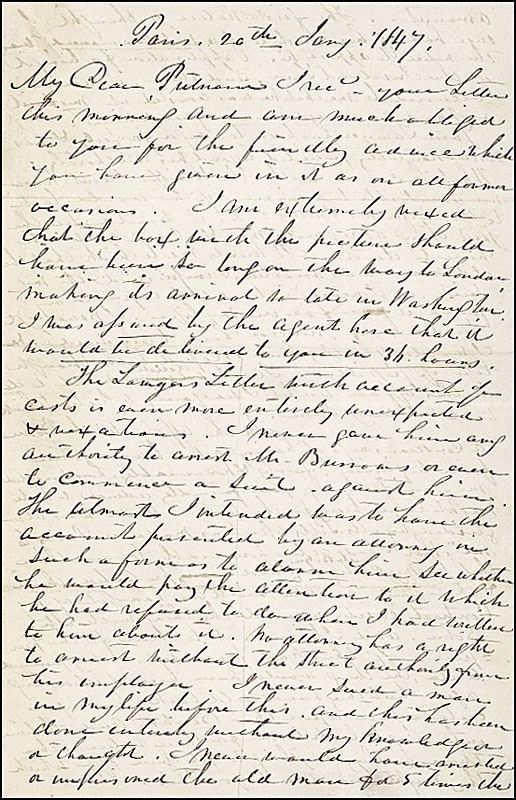 Paris. 20th Jany. 1847.
My Dear Putnam I recd. your Letter
this morning and am much obliged
to you for the friendly advice which
you have given in it as on all former
occasions. I am extremely vexed
that the box with the picture should
have been so long on the way to London
making its arrival so late in Washington
I was assured by the agent here that it
would be delivered to you in 36 hours.
The Lawyers Letter with account of
costs is even more entirely unexpected
& vexatious. I never gave him any
authority to arrest Mr. Burrows or even
to commence a suit against him.
The utmost I intended was to have the
account presented by an attorney in
such a form as to alarm him see whether
he would pay the attention to it which
he had refused to do when I had written
to him about it. No attorney has a right
to arrest without the strict authority from
his employer. I never sued a man
in my life before this. and this has been
done entirely without my knowledge or
or thought. I never would have arrested
or imprisoned the old man for 5 times the